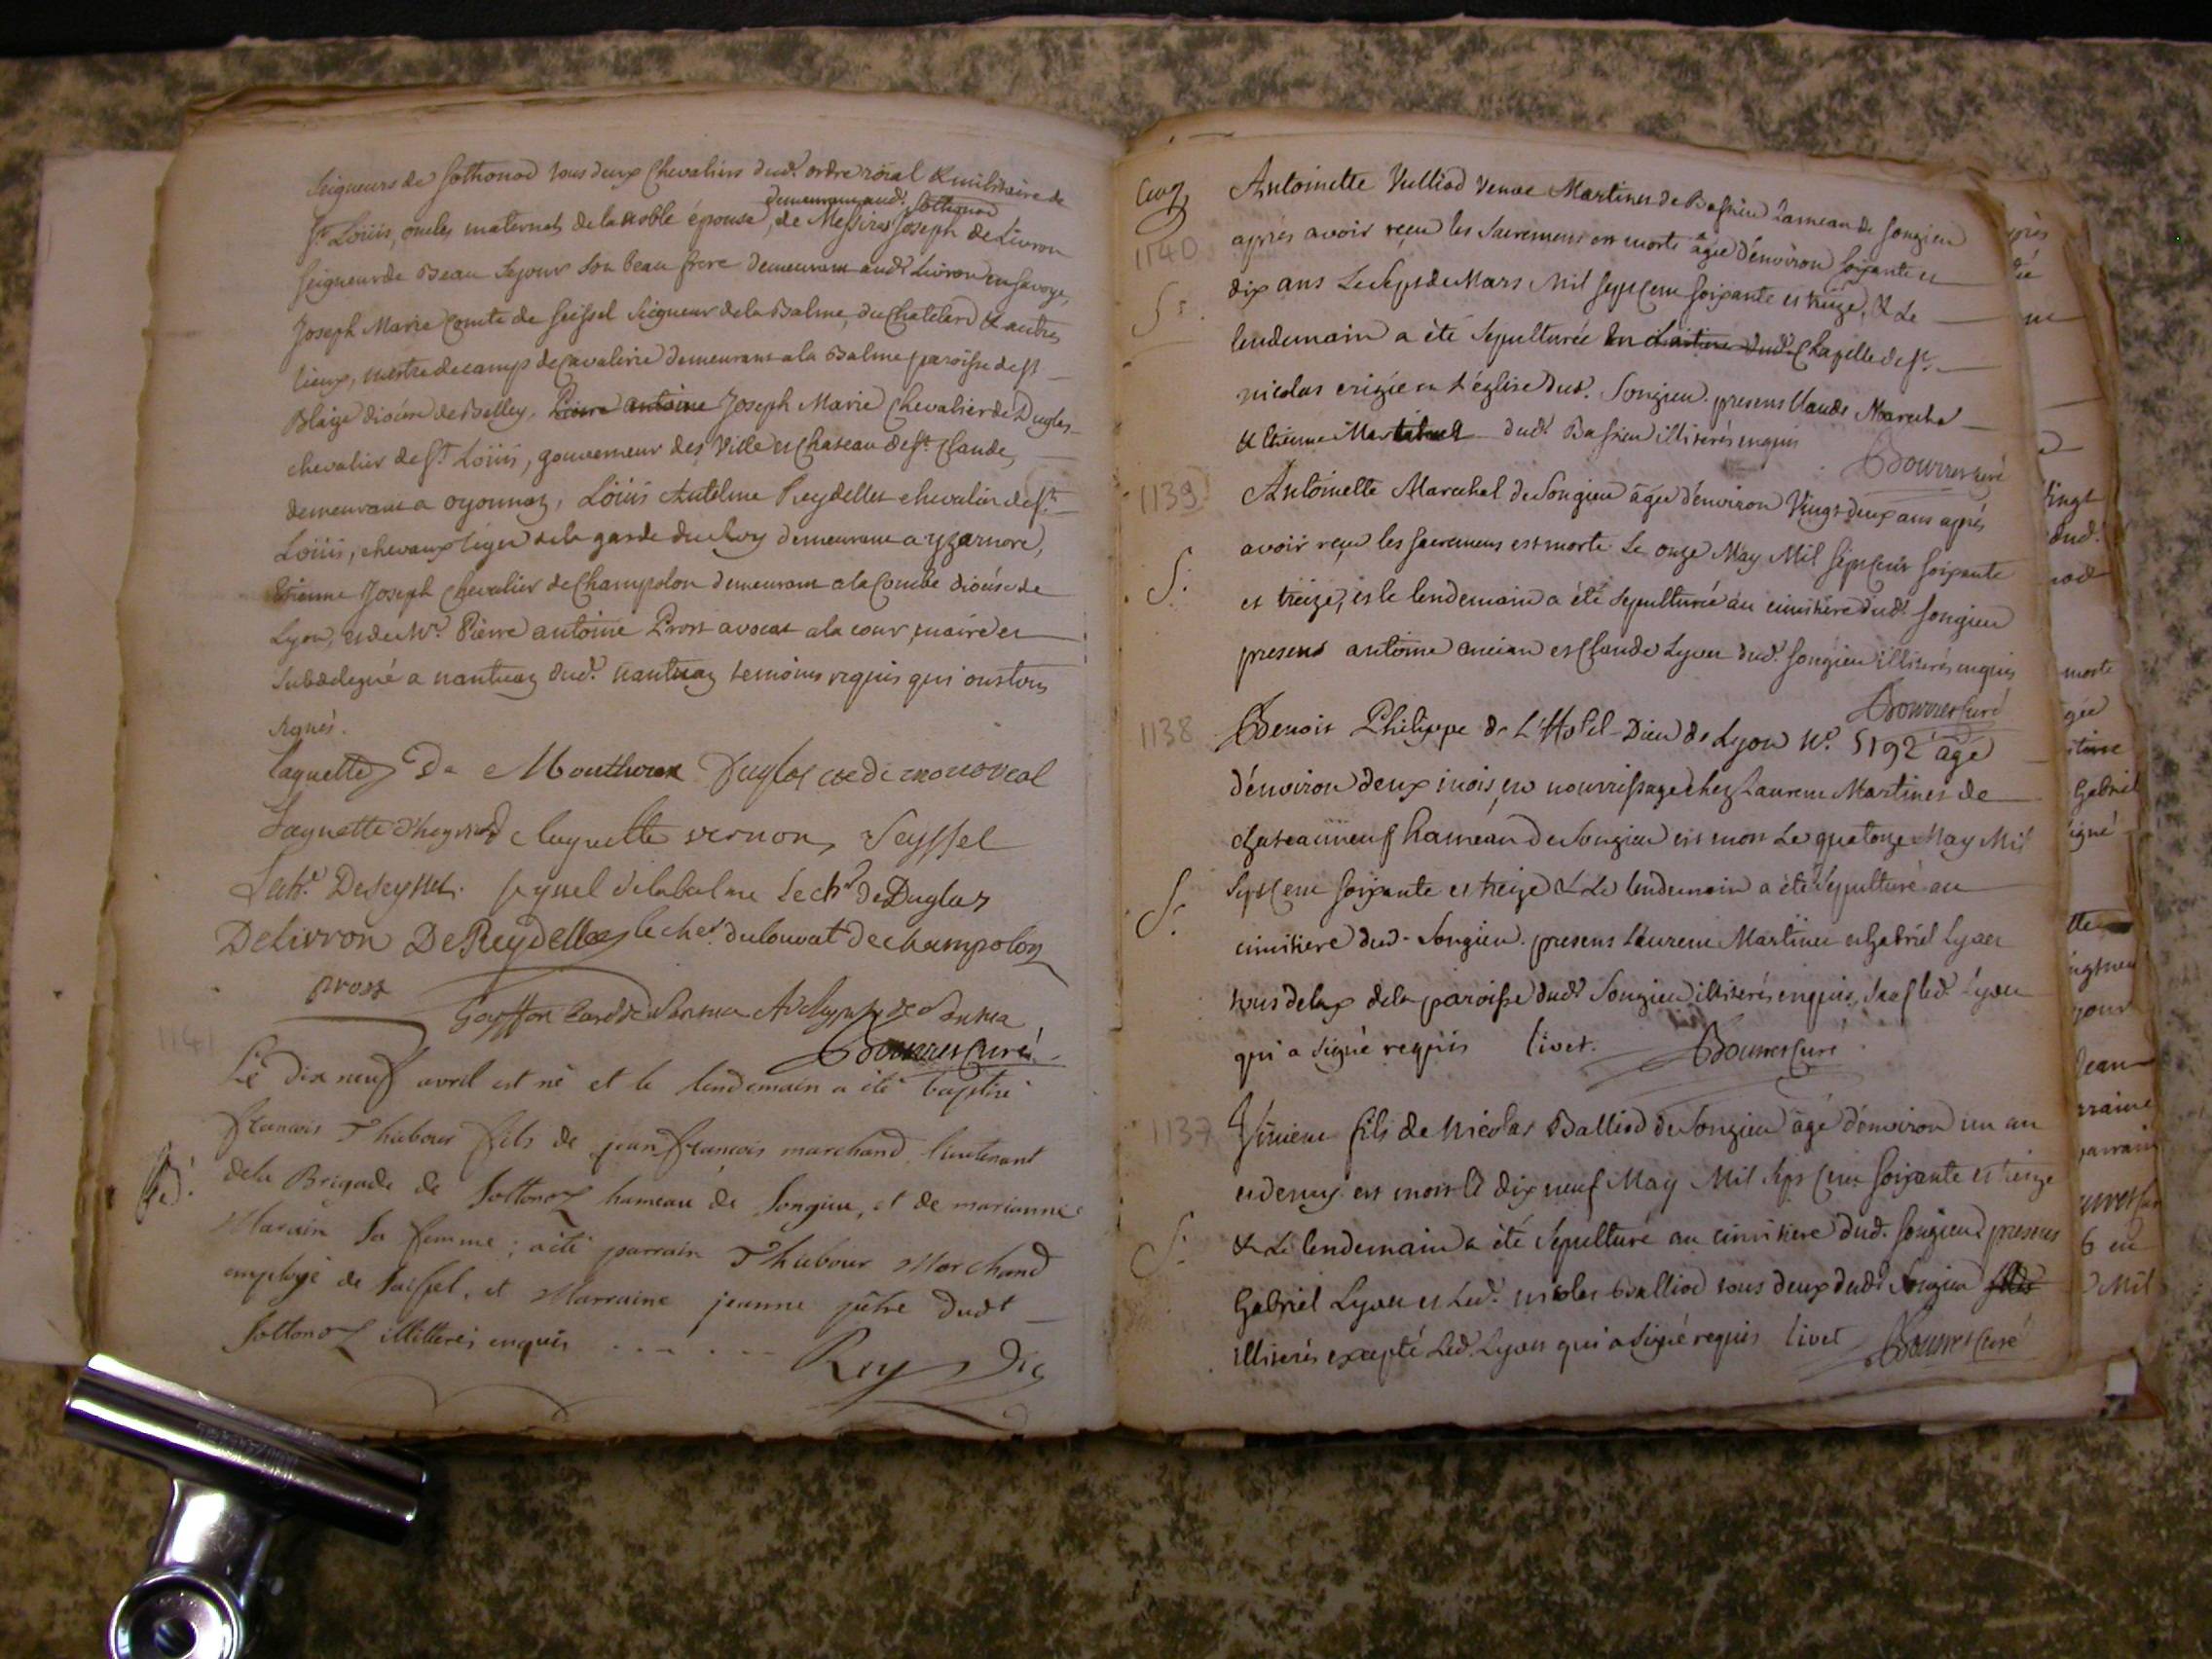 Seigneurs de Sothonod tous deux Chevaliers dud. ordre roïal & militaire de
St. Loüis, oncles maternels de la noble épouse, demeurans aud. Sothonod de Messires Joseph de Livron
Seigneur de Beau Sejour son beau frere demeurant aud. Livron en Savoye,
Joseph Marie Comte de Seissel Seigneur de la Balme, du Chatelard & autres
lieux, mestre de camp de Cavalerie demeurant a la Balme paroisse de St
Blaize diocese de Belley, Pierre antoine Joseph Marie Chevalier de Duglas
chevalier de St. Loüis, gouverneur des Ville et Chateau de St. Claude,
demeurant a oyonnaz, Loüis Antelme Reydellet chevalier de St.
Loüis, chevaux léger de la garde du Roy demeurant a yzarnore,
Etienne Joseph Chevalier de Champolon demeurant a la Combe diocése de
Lyon, et de Mr. Pierre antoine Prost avocat a la cour, maire et
Subdelegué a nantuaz dud. nantuaz temoins requis qui ont tous
signés.
Laguette De Mouthoux Duglas
Laguette d'heyriad laguette vernon, Seyssel
Le ch. De Seyssel. Seyssel de la balme Le chr De Duglas
De Livron De Reydellet le cher. du louvat de champolon
prost
Bourret Curé
1141
Le dix neuf avril est né et le lendemain a été baptisé
francois Thiebour fils de jean francois marchand lieutenant
de la Brigade de Sottonoz hameau de Songieu, et de marianne
Marain sa femme; a été parrain Thiebour Marchand
employé de Seissel, et Marraine jeanne dudt
Sottonoz illitteréz enquis . . . . . .
Rey Vic
1140
S.
Antoinette Vulliod veuve Martiner de Bassieu hameau de Songieu
aprés avoir reçeu les Sacremens est morte âgée d'énviron soixante et
dix ans Le Sept du Mars Mil Sept Cent soixante et treize, & Le
lendemain a été Sepulturée en Chapelle de St.
nicolas erigée en l'église dud. Songieu. presens Claude Marechal
& Etienne dud. Bassieu illiterés enquis
Bourret curé
1139
S.
Antoinette Marechal de Songieu âgée d'énviron Vingt deux ans aprés
avoir reçeu les sacremens est morte le onze May Mil Sept Cent soixante
et treize, et le lendemain a été Sepulturée au cimitiere dud. Songieu
presens antoine ancian et Claude Lyvet dud. Songieu illiterés enquis
Bourret Curé
1138
S.
Benoit Philippe de L'Hotel-Dieu de Lyon No. 5192 âgé
d'énviron deux mois, en nourrissage chez Laurent Martiner de
chateauneuf hameau de Songieu est mort Le quatorze May Mil
Sept Cent soixante et treize & Le lendemain a été Sepulturé au
cimitiere dud. Songieu. presens Laurent Martiner et Gabriel Lyvet
tous deux de la paroisse dud. Songieu illiterés enquis, sauf led. Lyvet
qui a signé requis livet. Bourret Curé
1137
S.
fils de Nicolas Balliod de Songieu âgé d'énviron un an
et demy est mort le dix neuf May Mil Sept Cent soixante et treize
& Le lendemain a été Sepulturé au cimitiere dud. Songieu presens
Gabriel Lyvet et Led. nicolas Balliod tous deux dud. Songieu
illiterés excepté Led. Lyvet qui a signé requis livet Bourret Curé